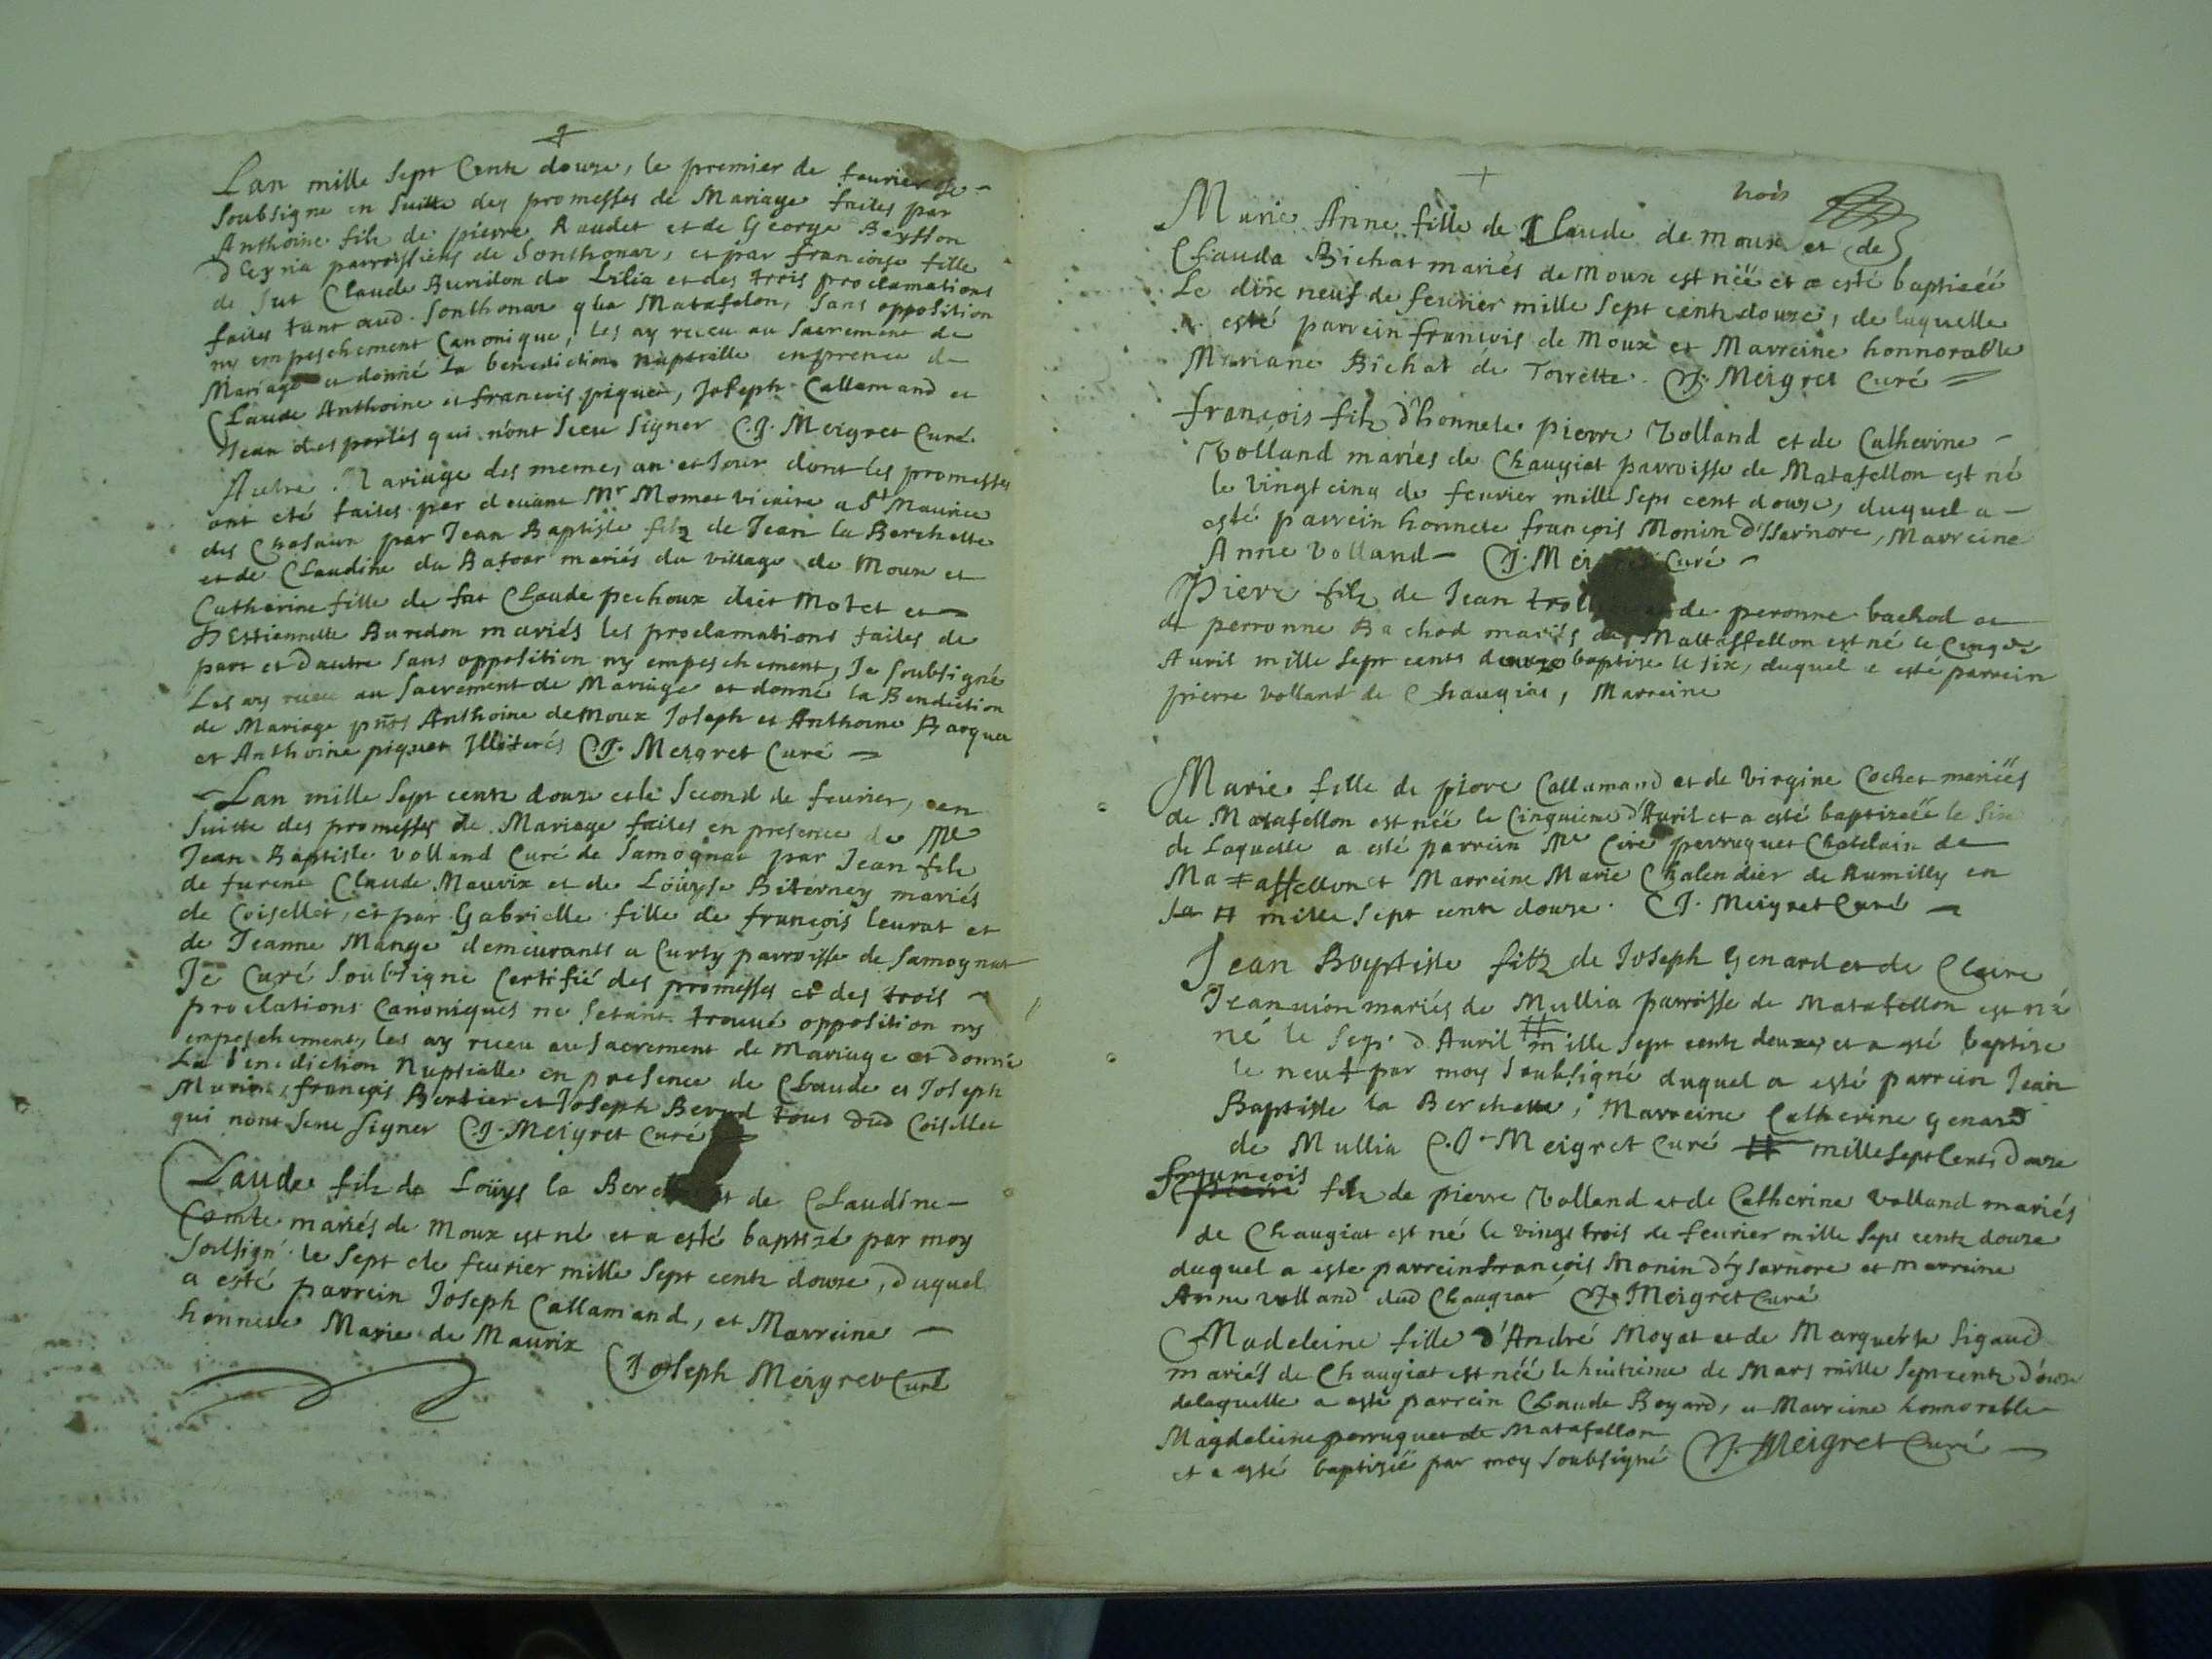 Lan mille Sept Centz douze, le premier de feurier je
soubsigne en suitte des promesses de Mariage faites par
Anthoine filz de pierre Raudet et de George Beysson
d'Ceyria parroissiens de Sonthonax, et par francoise fille
de fut Claude Buridon de Lilia et des trois proclamations
faites tant aud. Sonthonax q'ua Matafelon, sans opposition
ny empeschement Canonique, les ay receu au Sacrement de
Mariage et donné la benediction nuptialle en prence de
Claude Anthoine et francois piquet, Joseph Callamand et
Jean desportes qui n'ont sceu signer C.J. Meigret Curé
Autre Mariage des memes an et Jour dont les promesses
ont eté faites par devant Mr Momet vicaire a St Maurice
des Chasaux par Jean Baptiste filz de Jean la Berchette
et de Claudine du Bafour mariés du village de Moux et
Catherine fille de fut Claude pechoux dict Motet et
d'Estiennette Buredon mariés les proclamations faites de
part et d'autre sans opposition ny empeschement, Je soubsigné
Les ay receu au Sacrement de Mariage et donné la Bendiction
de Mariage pnts Anthoine de Moux Joseph et Anthoine Barquet
et Anthoine piquet Illiterés C.J. Meigret Curé
Lan mille Sept centz douze et le Second de feurier, en
suitte des promesses de Mariage faites en presence de Mre
Jean Baptiste Volland Curé de Samognat par Jean filz
de furent Claude Maurix et de Loüyse Biterney mariés
de Coisellet, et par Gabrielle fille de françois leurat et
de Jeanne Mange demeurants a Curty parroisse de Samognat
Je Curé Soubsigne Certifié des promesses et des trois
proclations Canoniques ne s'etant trouué opposition ny
empeschement, les ay receu au Sacrement de Mariage et donné
La benediction Nuptialle en presence de Claude et Joseph
Murix, françois Bertier et Joseph Berrod tous dud Coisellet
qui n'ont sceu signer C.J. Meigret Curé
Claude filz de Loüys la Berchette et de Claudine
Comte mariés de Moux est né et a esté baptizé par moy
Soubsigné le Sept de feurier mille Sept centz douze, duquel
a esté parrein Joseph Callamand, et Marreine
honneste Marie de Maurix
C Joseph Meigret Curé
trois
Marie Anne fille de Claude de Moux et de
Clauda Bichat mariés de Moux est néë et a esté baptizéé
Le dix neuf de feurier mille Sept centz douze, de laquelle
a esté parrein françois de Moux et Marreine honnorable
Mariane Bichat de Toirette. C.J. Meigret Curé
françois filz d'honnete pierre Volland et de Catherine
Volland mariés de Chaugiat parroisse de Matafellon est né
le vingt cinq de feurier mille Sept cent douze, duquel a
esté parrein honneste françois Monin d'Isernore, Marreine
Anne Volland C.J. Meigret Curé
Pierre filz de Jean de peronne bachod et
de perronne Bachod mariés de Mattaffellon est né le Cinq de
Auril mille Sept cents douze baptize le six, duquel a esté parrein
pierre Volland de Chaugiat, Marreine
Marie fille de piere Callamand et de Virgine Cochet mariés
de Matafellon est néë le Cinquieme d'Auril et a esté baptizéë le six
de Laquelle a esté parrein Mre Ciré perruquet Chatelain de
Mataffellon et Marreine Marie Chalendier de Rumilly en
mille Sept centz douze. C.J. Meigret Curé
Jean Baptiste filz de Joseph Genard et de Claire
Jeanuion mariés de Mullia parroisse de Matafellon est né
né le Sept d'Auril # mille Sept centz douze et a esté baptize
le neuf par moy Soubsigné duquel a esté parrein Jean
Baptiste la Berchette, Marreine Catherine Genard
de Mullia C.J. Meigret Curé # mille Sept Cents Douze
françois
filz de pierre Volland et de Catherine Volland mariés
de Chaugiat est né le vingt trois de feurier mille Sept centz douze
duquel a este parrein françois Monin d'ysarnore et marreine
Anne Volland dud Chaugiat C.J. Meigret Curé
Madeleine fille d'André Moyat et de Marguerite Sigaud
mariés de Chaugiat est néé le huitieme de Mars mille Sept centz douze
de laquelle a esté parrein Claude Boyard, et Marreine honnorable
Magdeleine perruquet de Matafellon
et a esté baptisée par moy Soubsigné C.J. Meigret Curé